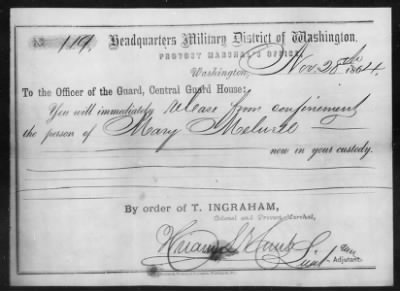 No. 119. Headquarters Military District of Washington,
PROVOST MARSHAL'S OFFICE,
Washington, Nov. 28th 1864.
To the Officer of the Guard, Central Guard House:
You will immediately release from confinement
the person of Mary
now in your custody.
By order of T. INGRAHAM,
Colonel and Provost Marshal,
Lieut
Adjutant.